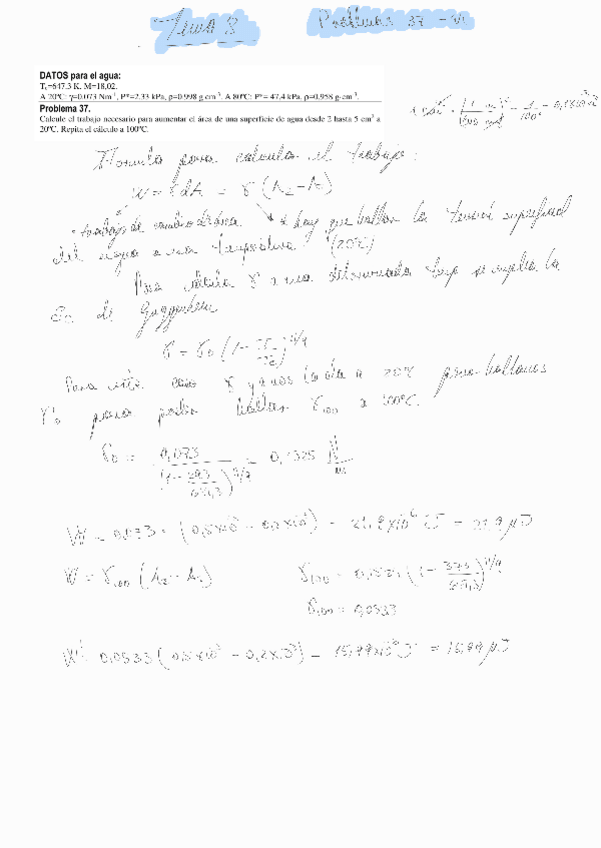 Tema 3 Problemas 37 - 41
DATOS para el agua:
Tc=647.3 K. M=18,02.
A 20ºC: γ=0.073 Nm⁻¹, P*=2.33 kPa, ρ=0.998 g cm⁻³. A 80ºC: P*= 47.4 kPa. ρ=0.958 g·cm⁻³.
Problema 37.
Calcule el trabajo necesario para aumentar el área de una superficie de agua desde 2 hasta 5 cm² a
20ºC. Repita el cálculo a 100ºC.
Formula para calcular el trabajo:
W = γ dA = γ (A₂ - A₁)
hay que hallar la tensión superficial
del agua a una temperatura (20ºC)
Para calcular γ a una determinada temp se emplea la
Ec de Guggenheim
σ = σ0 (1 - T/Tc)^11/9
Para este caso γ ya nos la da a 20ºC para hallamos
γ0 para poder hallar γ100 a 100ºC.
γ0 = 0,073 / (1 - 293/647,3)^11/9 = 0,1325 N/m
W = 0,073 · (0,5x10 - 0,2x10) = 21,9 x10⁻⁶ J = 21,9 μJ
W = γ100 (A₂ - A₁) γ100 = (1 - 373/647,3)^11/9
γ100 = 0,0533
W = 0,0533 (0,5x10 - 0,2x10) = 15,99x10⁻⁶ J = 15,99 μJ